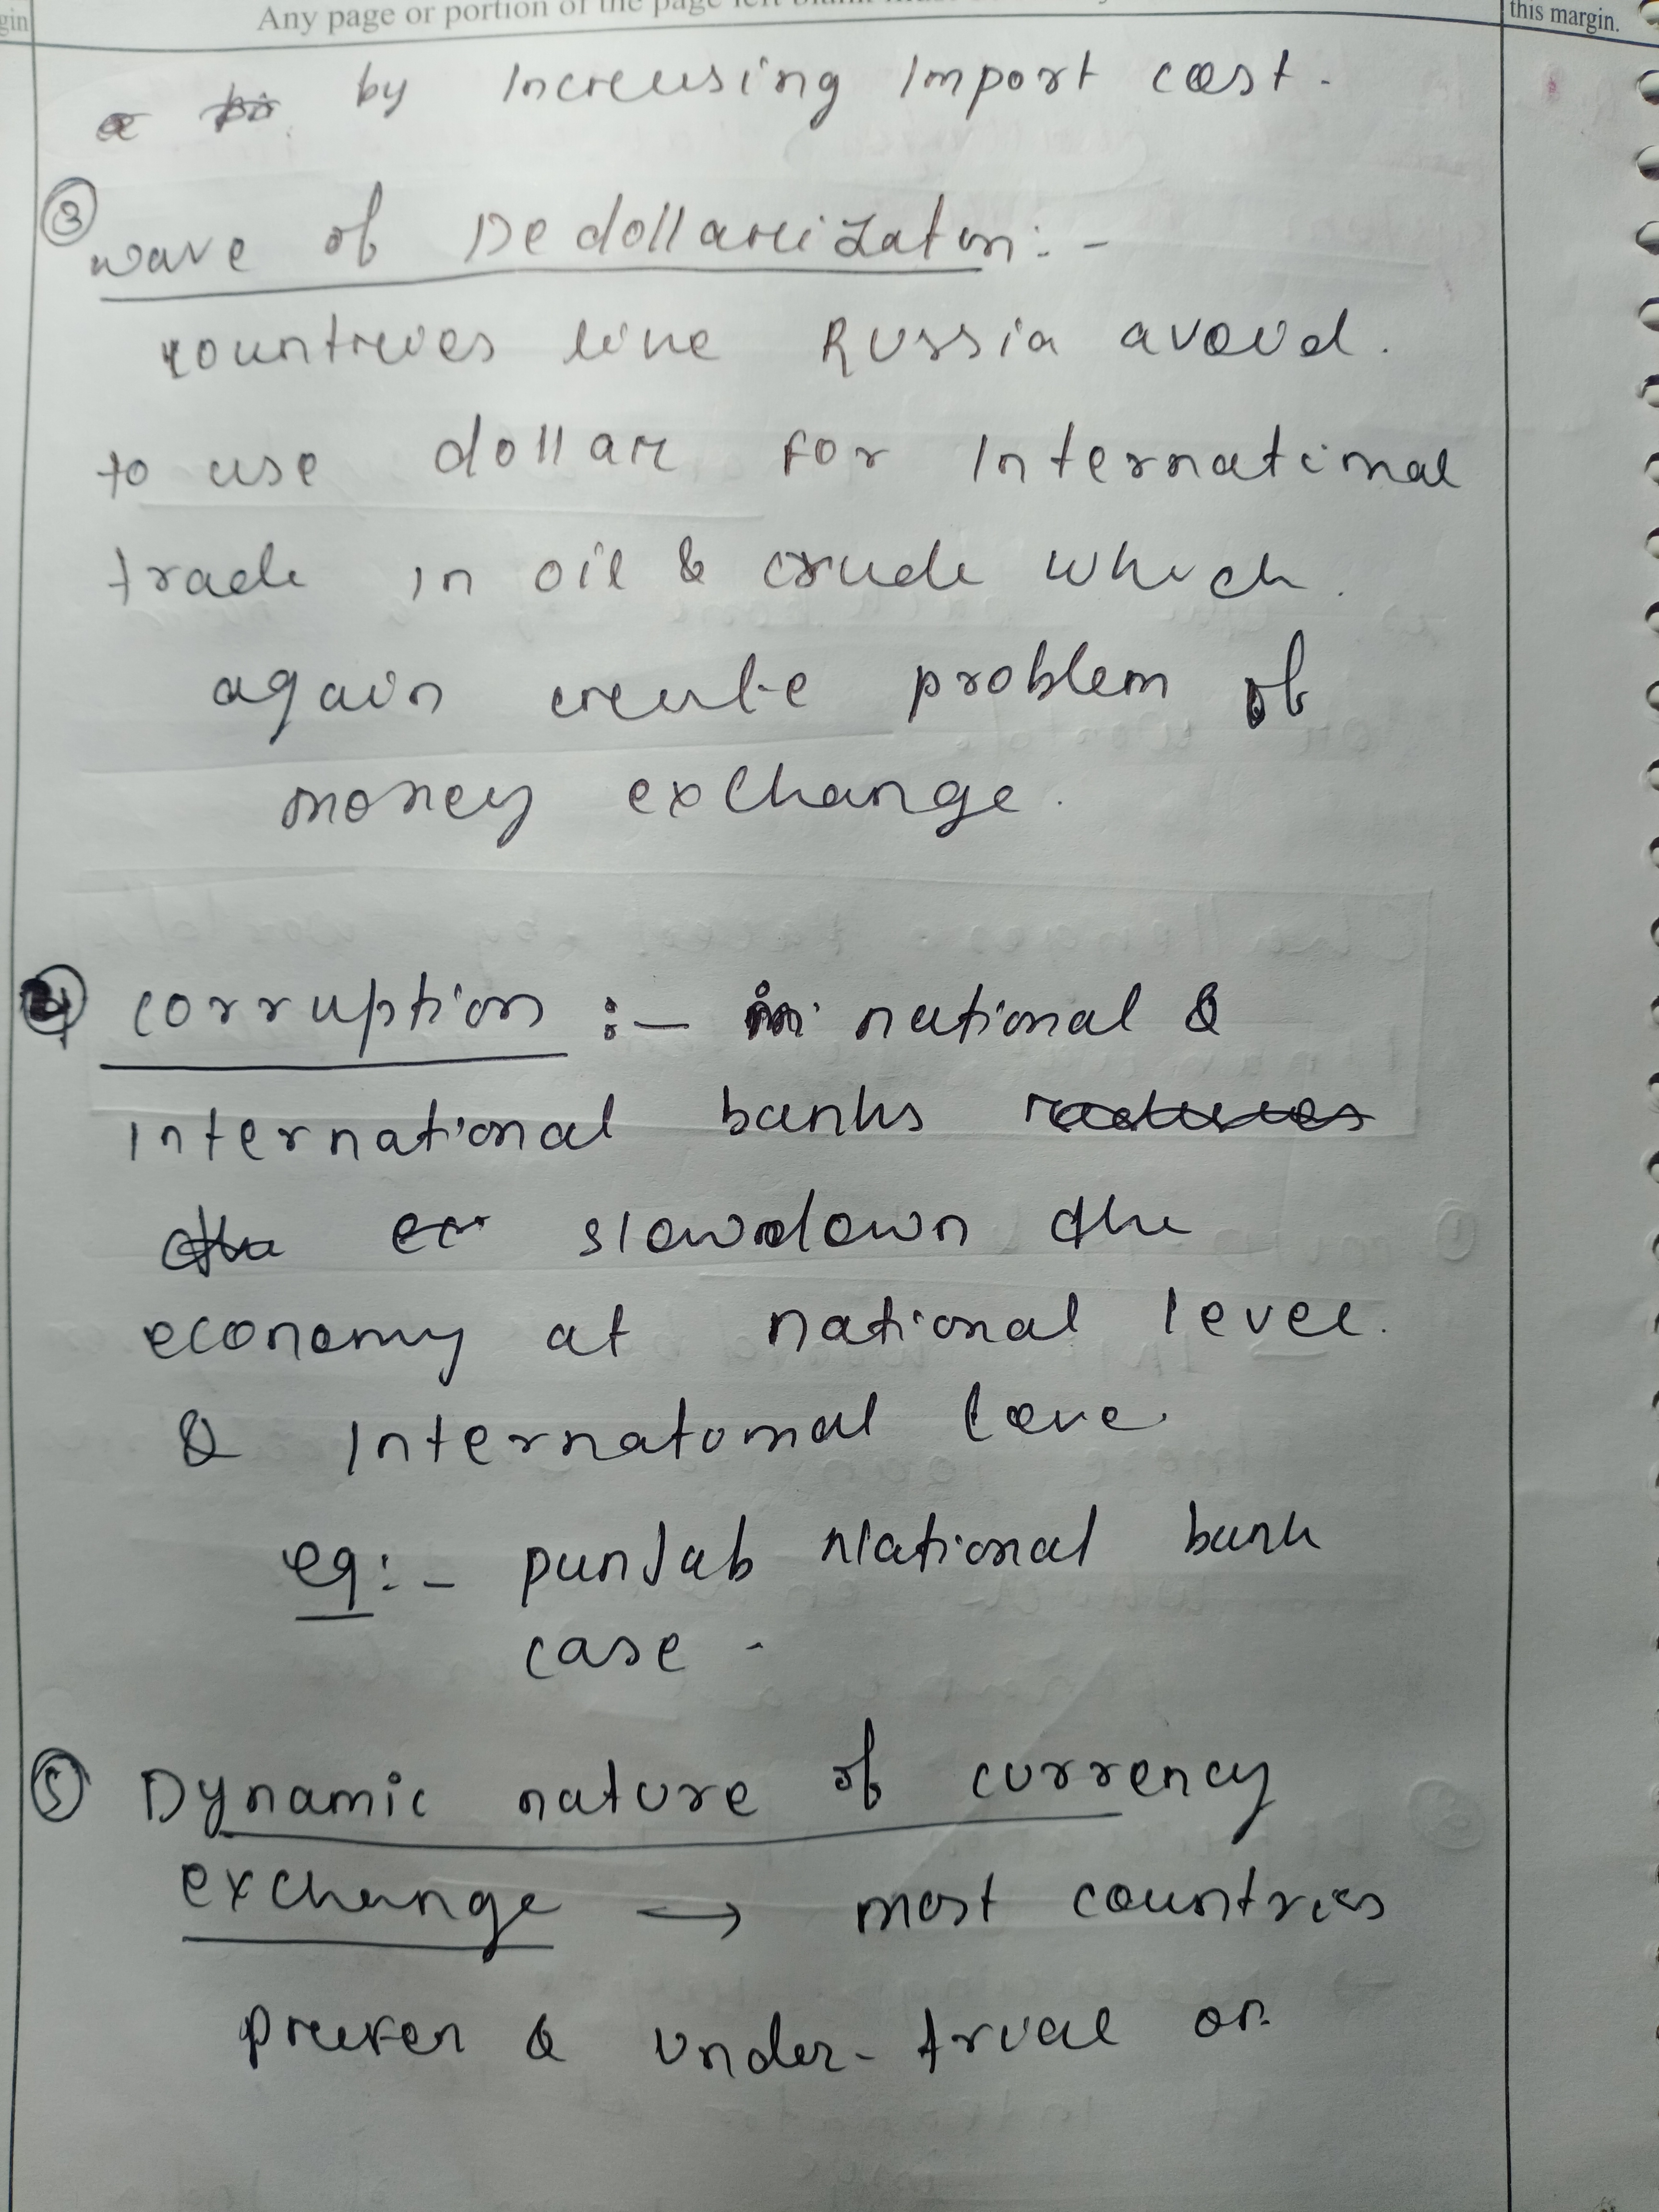 gin
Any page or portion of the page left blank must
this margin.
by Increusing Import cost.
③
wave of Dedollarization:-
countries like Russia avoid.
to use dollar for International
trade in oil & crude which
again create problem of
money exchange.
④ corruption :- in national &
International banks
slowdown the
economy at national level.
& International leve
eg:- punjab National bank
case -
⑤ Dynamic nature of currency
exchange → most countries
prefer & under-trial or